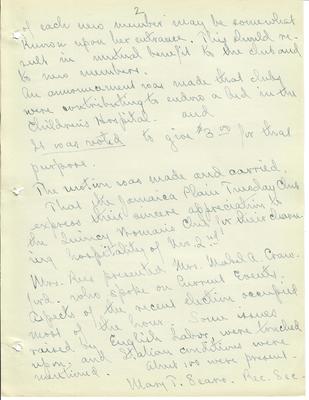 2
of each new member may be somewhat
known upon her entrance. This should re-
sult in mutual benefit to the club and
to new members.
An announcement was made that clubs
were contributing to endow a bed in the
Children's Hospital. and
It was voted to give $3.00 for that
purpose.
The motion was made and carried,
That the Jamaica Plain Tuesday Club
express their sincere appreciation to
the Quincy Womans Club for their charm-
ing hospitality of Nov. 2nd.
Mrs. Rees presented Mrs. Mabel A. Craw-
ford. who spoke on Current Events.
Aspects of the recent election occupied
most of the hour. Some issues
raised by English Labor were touched
upon, and Italian conditions were
mentioned. About 100 were present.
Mary T. Sears. Rec. Sec.